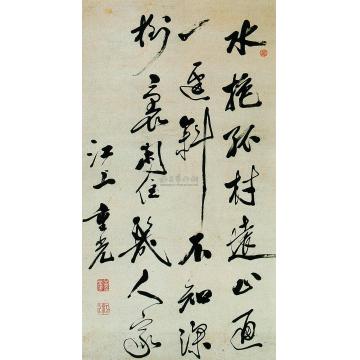 水抱孤村遠山通
一逕斜不知深
樹裏住幾人家
江上重光